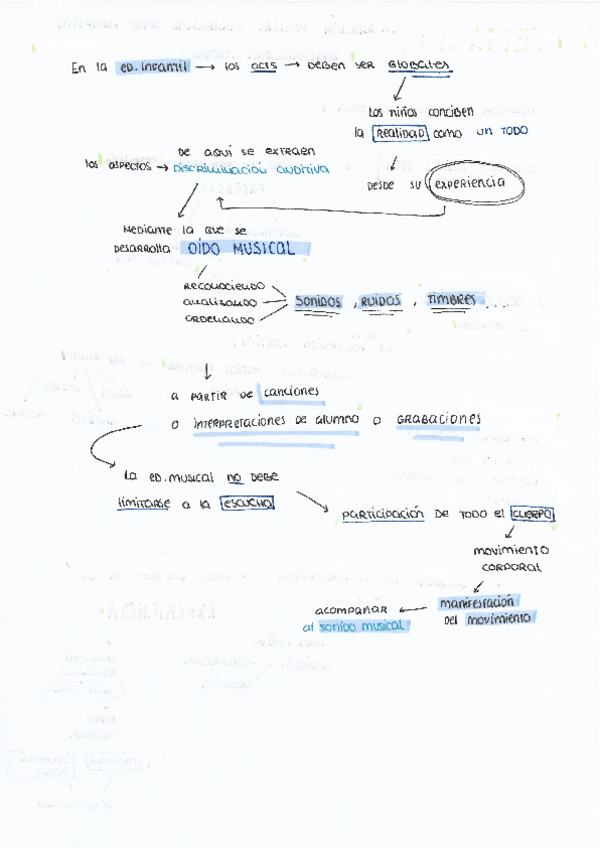 En la ED. Infantil → las acts → DEBEN SER GlOBalES
los niños conciben
la REALIDAD como un TODO
DESDE SU EXPERIENCIA
DE aquí SE EXTRAEN
los aspectos → DISCRIMINACIÓN auditiva
MEDIANTE la que se
DESARROLLA OÍDO MUSICAL
RECONOCIENDO
analizando
ORDENANDO
SONIDOS, RUIDOS, TIMBRES...
a PARTIR DE canciones
o INTERPRETACIONES DE alumno o GRABACIONES
la ED. musical no DEBE
limitarse a la ESCUCHA
PARTICIPACIÓN DE TODO el CUERPO
movimiento
CORPORAL
manifestación
DEL movimiento
acompañar
al sonido musical